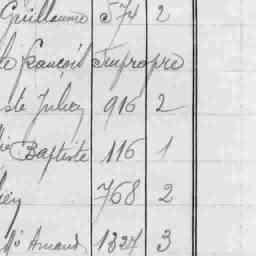 Guillaume 574 2
le françois Impropre
ste Julien 916 2
Baptiste 116 1
768 2
Armand 1327 3